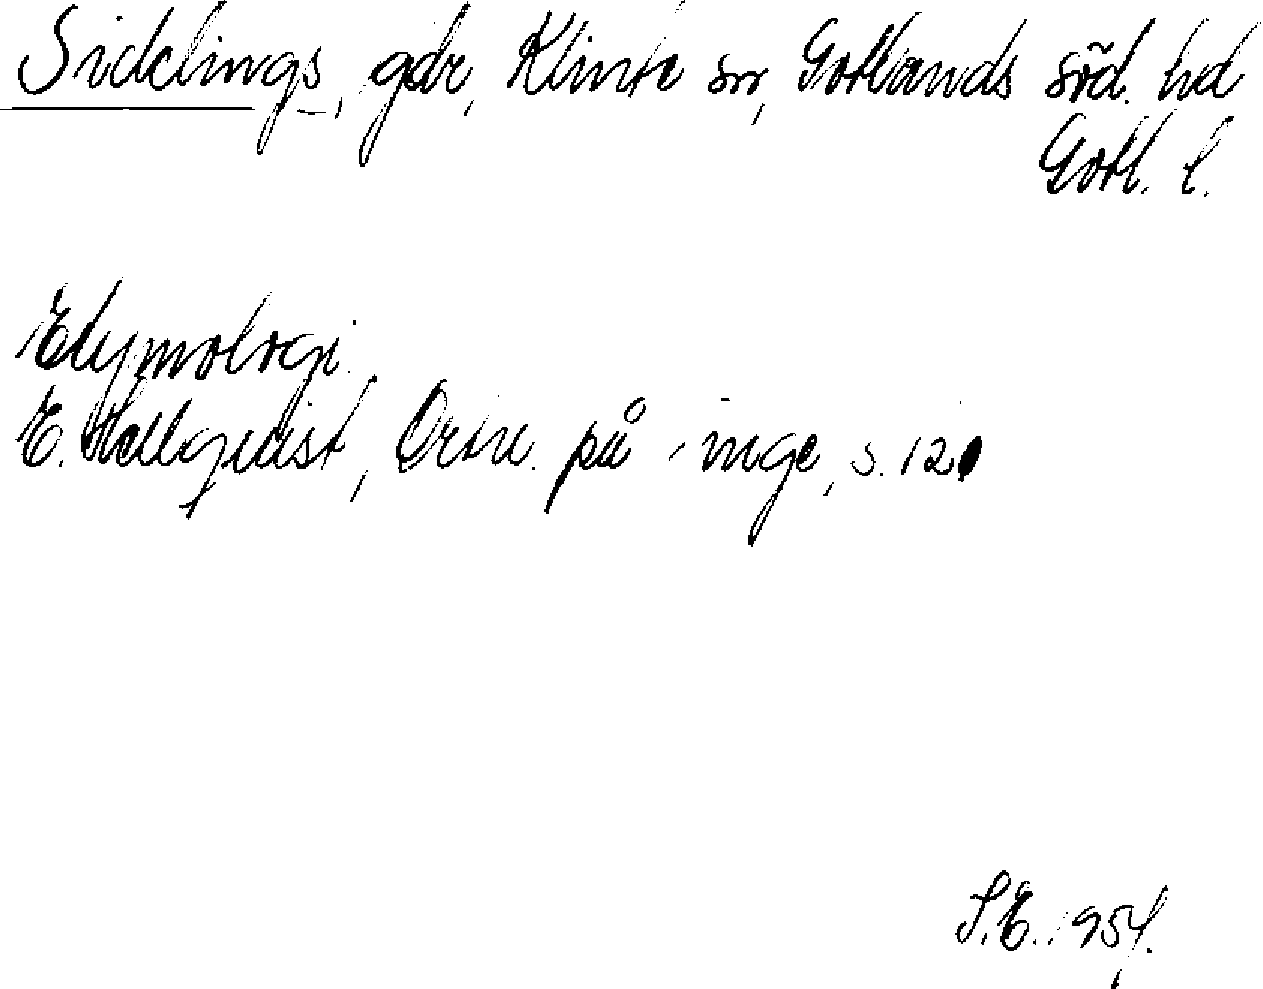 Sidelings, gdr, Klinte sn, Gotlands söd. hd
Gotl. l.
Etymologi.
E. Hellquist, Ortn. på -inge, s. 120
S.E. 1954.